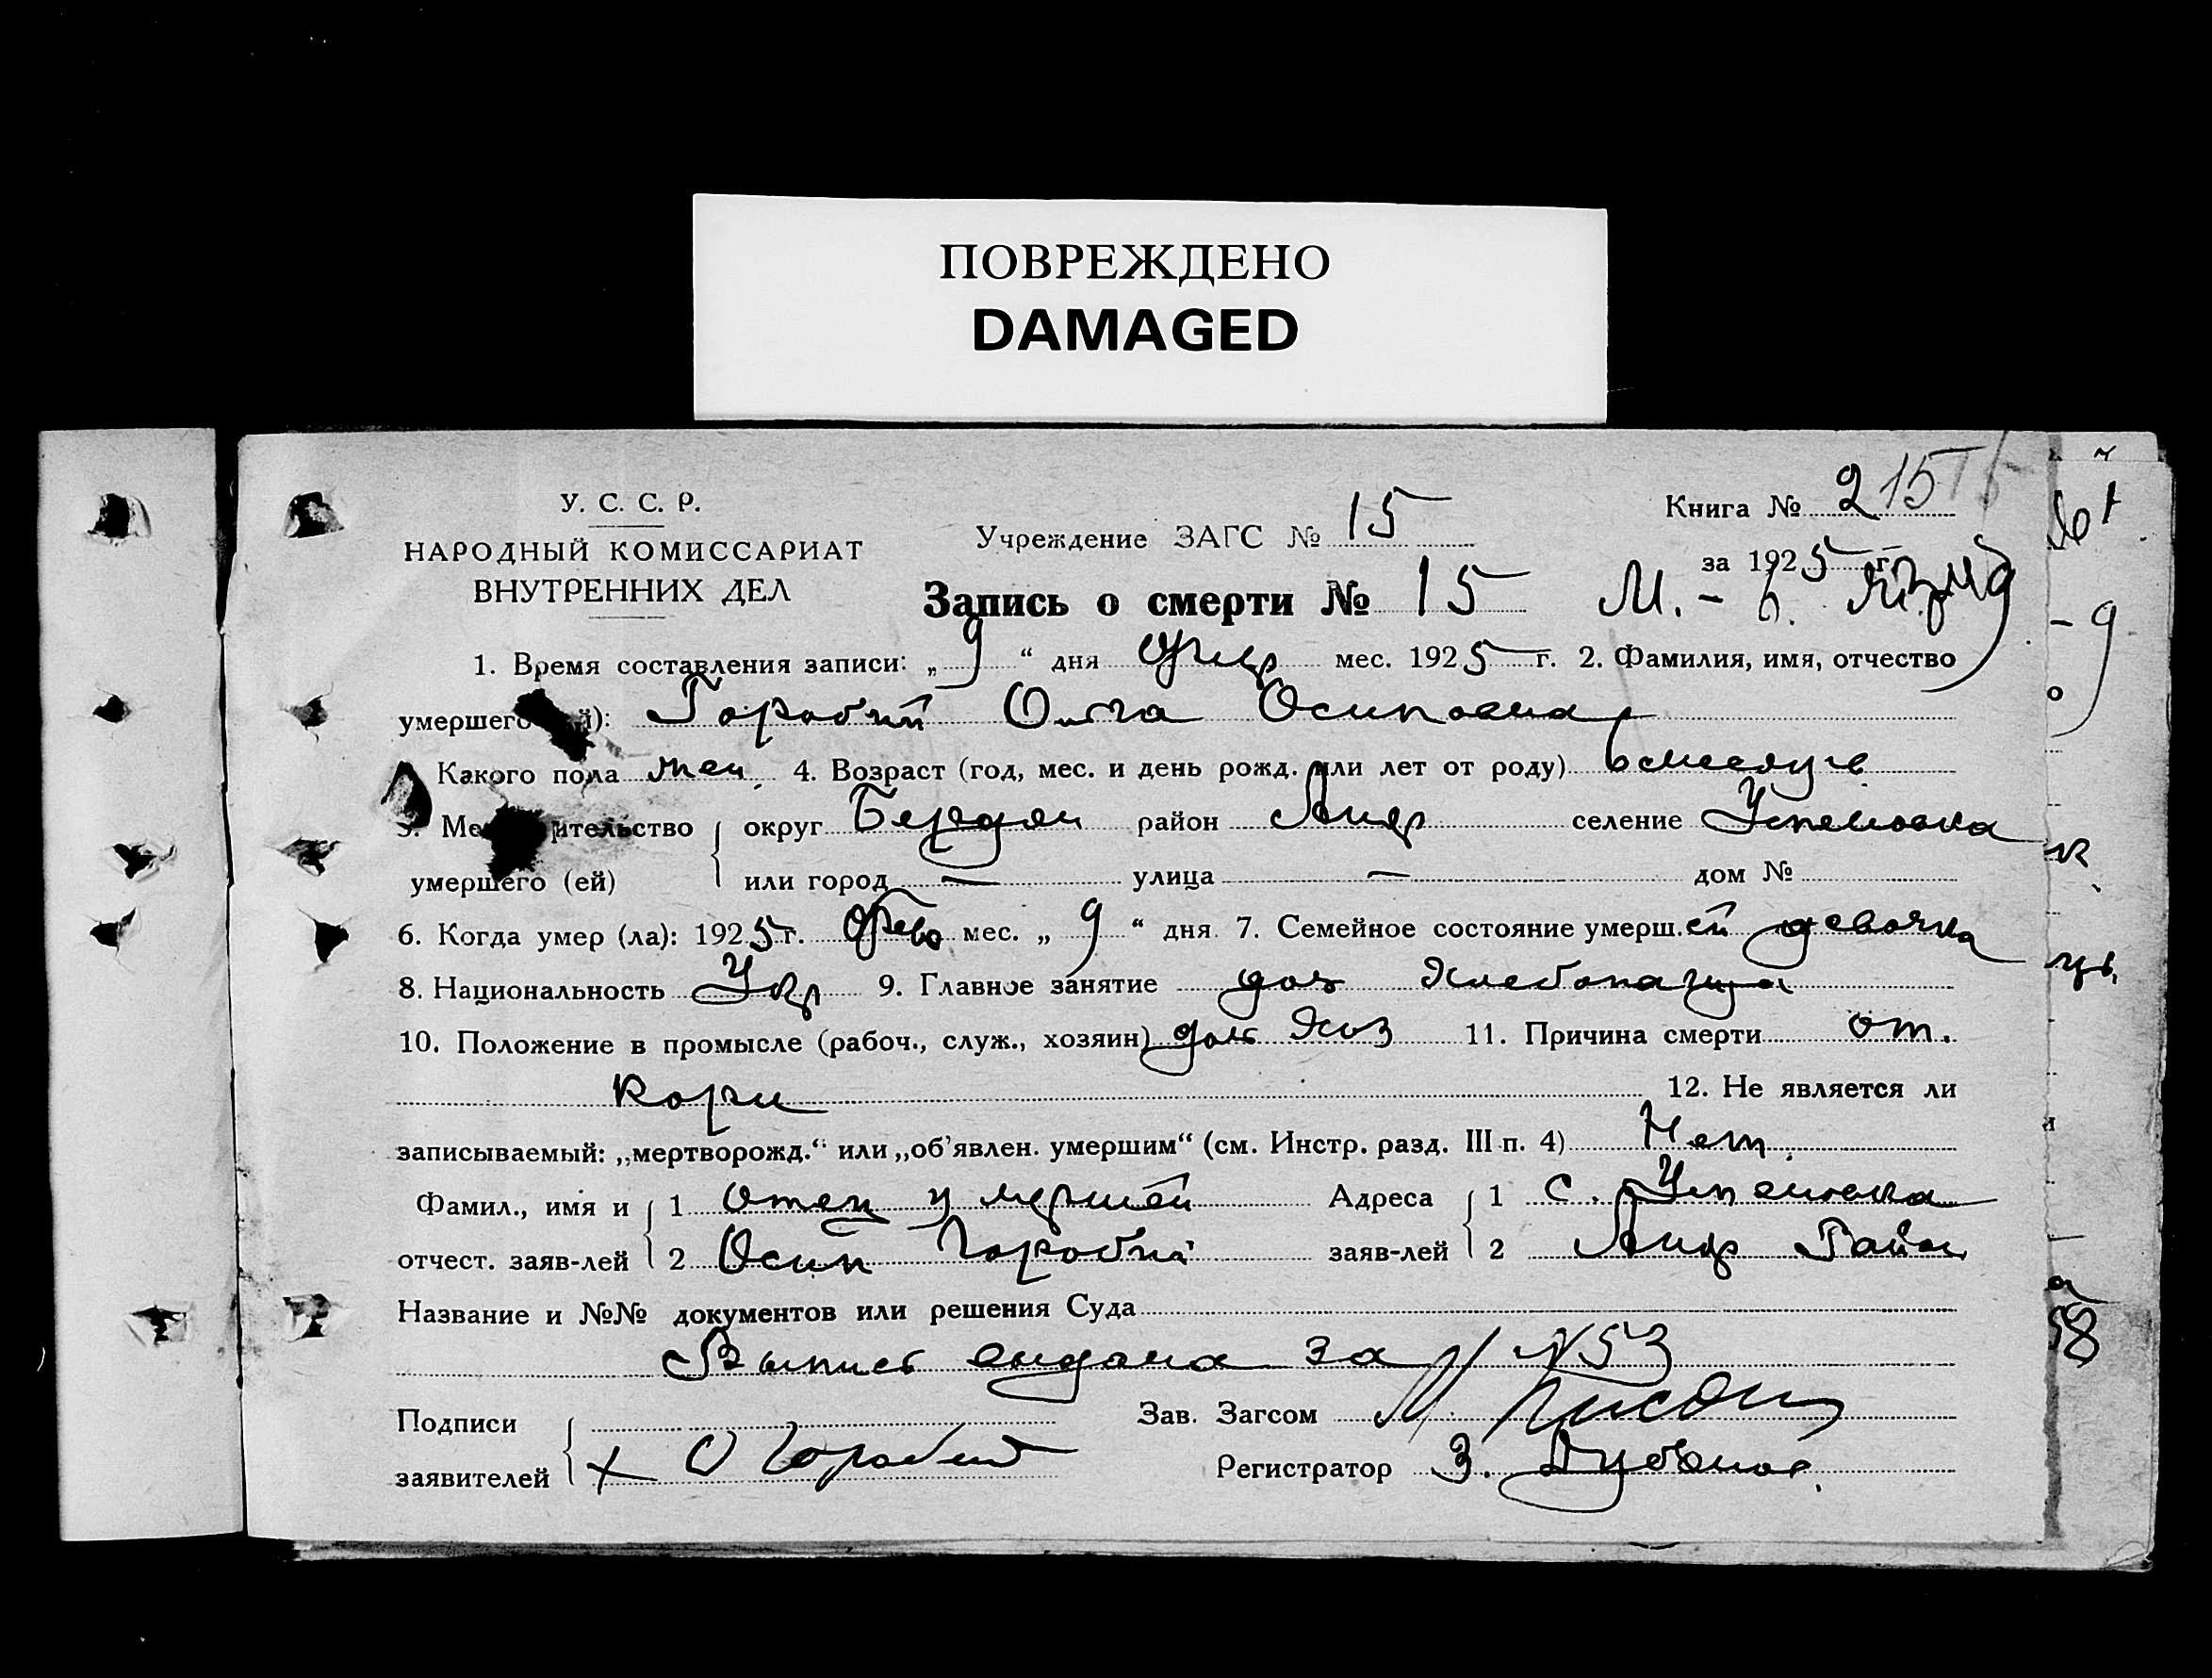 ПОВРЕЖДЕНО
DAMAGED
У. С. С. Р.
НАРОДНЫЙ КОМИССАРИАТ
ВНУТРЕННИХ ДЕЛ
Учреждение ЗАГС № 15
Книга № 2 15
за 1925 г.
Запись о смерти № 15 М. - 6.
1. Время составления записи: „ 9 “ дня мес. 1925 г. 2. Фамилия, имя, отчество
умершего й): Горобий Ольга Осиповна
Какого пола жен 4. Возраст (год, мес. и день рожд. или лет от роду) 6 месяцев
5. Ме ительство округ Бердян район Андр селение Успеновка
умершего (ей) или город — улица — дом №
6. Когда умер (ла): 1925 г. Февр мес. „ 9 “ дня 7. Семейное состояние умерш. ей девочка
8. Национальность Укр 9. Главное занятие доч хлебопашца
10. Положение в промысле (рабоч., служ., хозяин) доч хоз 11. Причина смерти от.
кори 12. Не является ли
записываемый: „мертворожд.“ или „об’явлен. умершим“ (см. Инстр. разд. III п. 4) Нет
Фамил., имя и 1 Отец умершей Адреса 1 с. Успеновка
отчест. заяв-лей 2 Осип Горобий заяв-лей 2 Андр Район
Название и №№ документов или решения Суда
Выпись выдана за N 53
Подписи Зав. Загсом
заявителей + О Горобий Регистратор З.